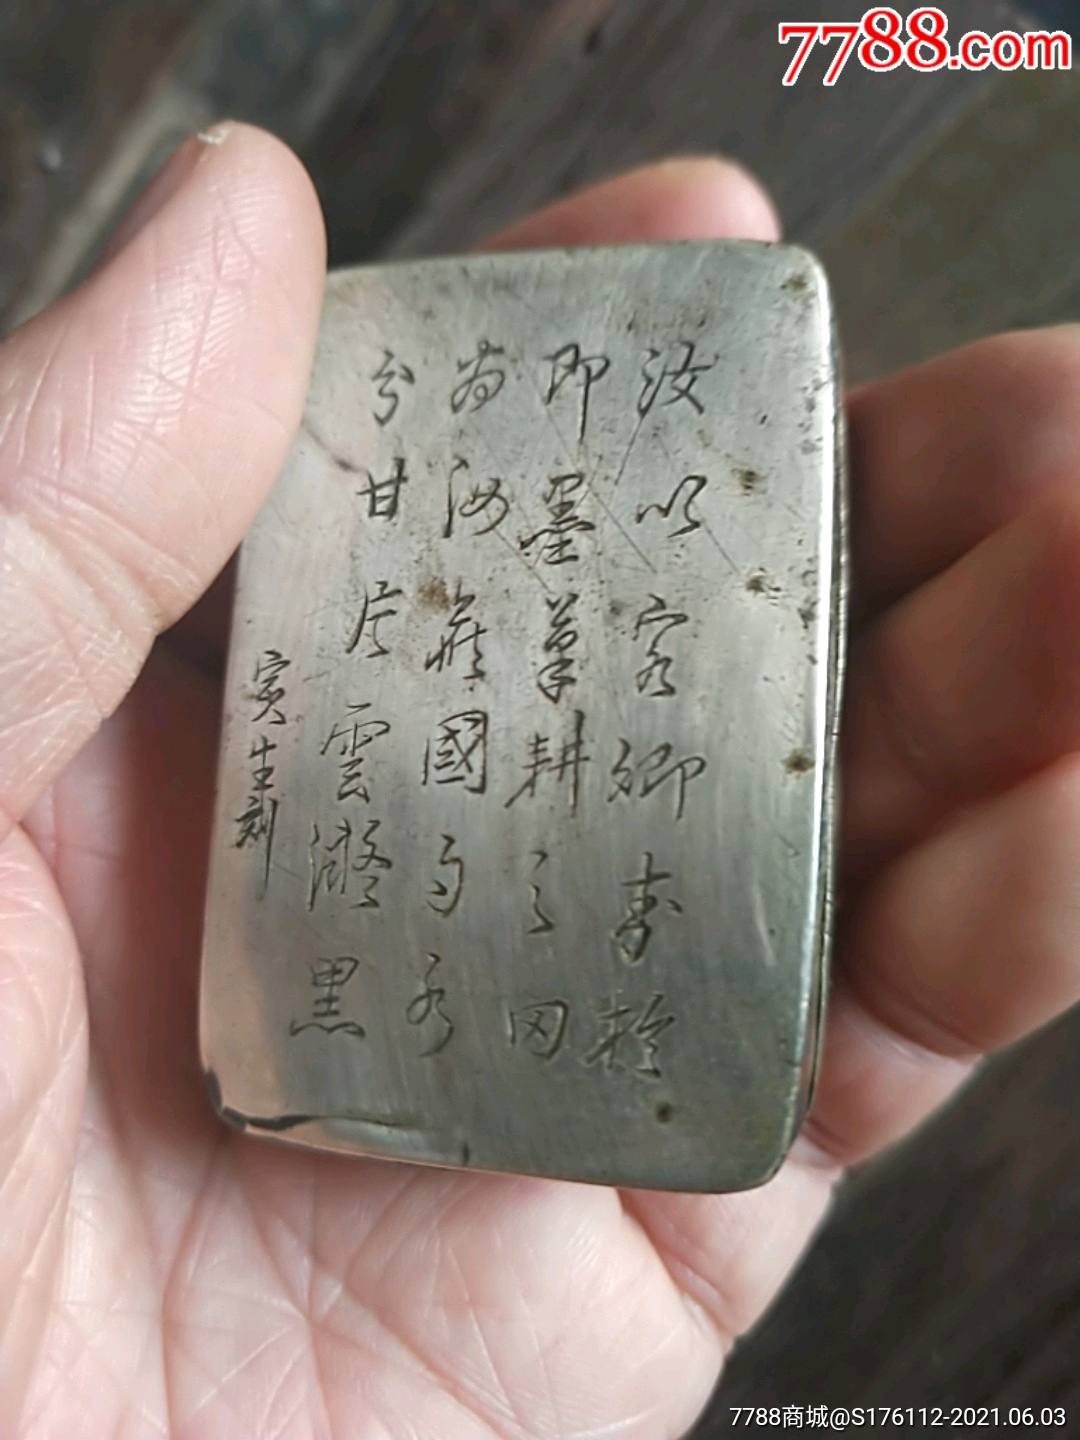 7788.com
汝以客卿壽於
即墨筆耕之田
為汝國
兮甘片雲凝黑
寅生刻
7788商城@S176112-2021.06.03